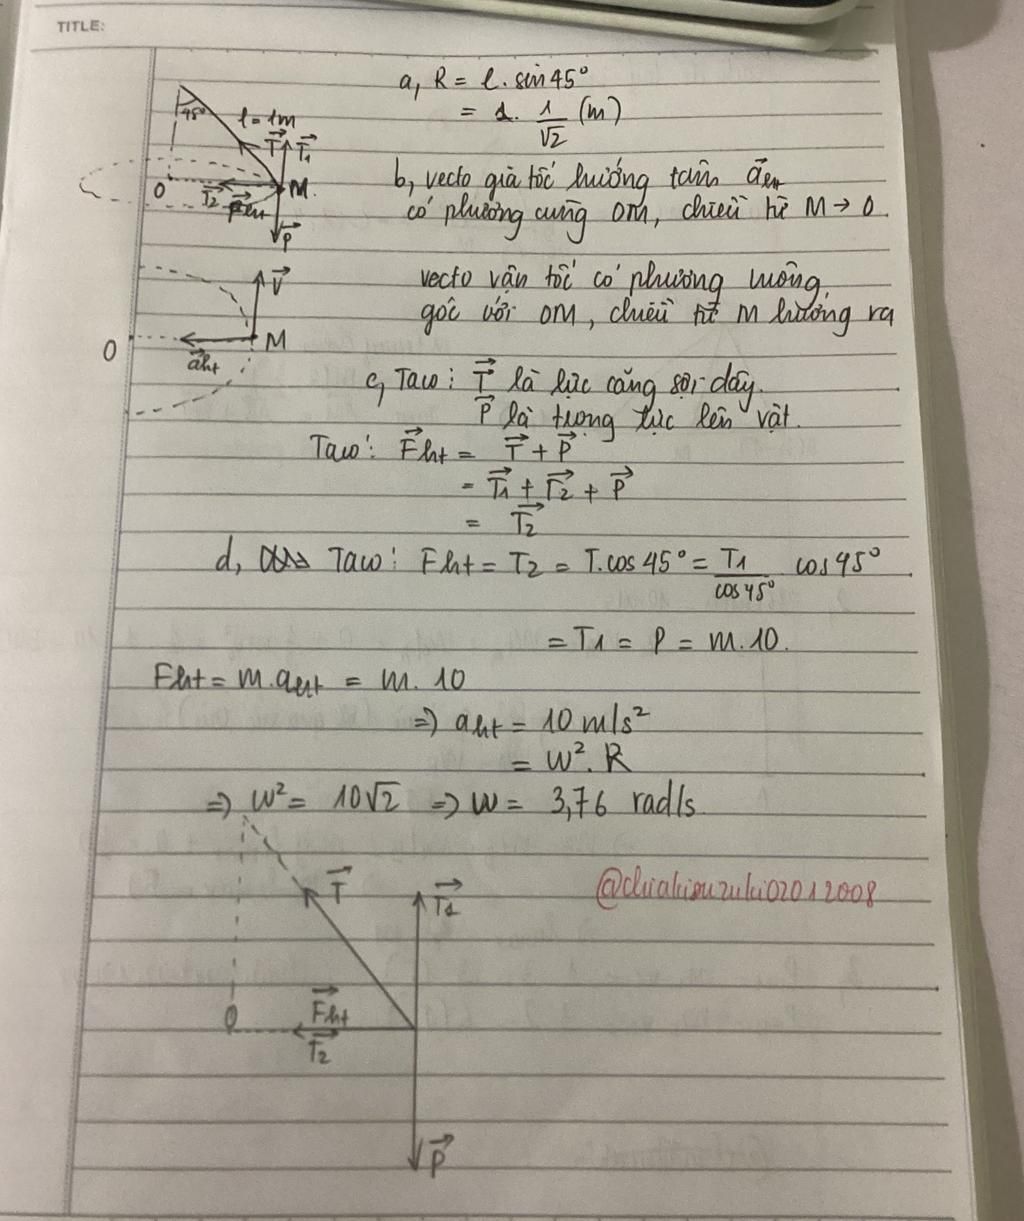 TITLE:
a, R = l. sin 45°
= 1. 1/√2 (m)
45°
l = 1m
T⃗ T⃗₁
O T⃗₂ F⃗ht M
P⃗
b, vectơ gia tốc hướng tâm a⃗ht
có phương cùng OM, chiều từ M → O.
v⃗
O a⃗ht M
vectơ vận tốc có phương vuông
góc với OM, chiều từ M hướng ra
c, Ta có: T⃗ là lực căng sợi dây.
P⃗ là trọng lực lên vật.
Ta có: F⃗ht = T⃗ + P⃗
= T⃗₁ + T⃗₂ + P⃗
= T⃗₂
d, Ta có: Fht = T₂ = T.cos 45° = T₁/cos 45° cos 45°
= T₁ = P = m.10.
Fht = m.aht = m.10
=> aht = 10 m/s²
= W². R
=> W² = 10√2 => W = 3,76 rad/s
@chiakisuzuki02012008
T⃗ T⃗₁
O F⃗ht
T⃗₂
P⃗